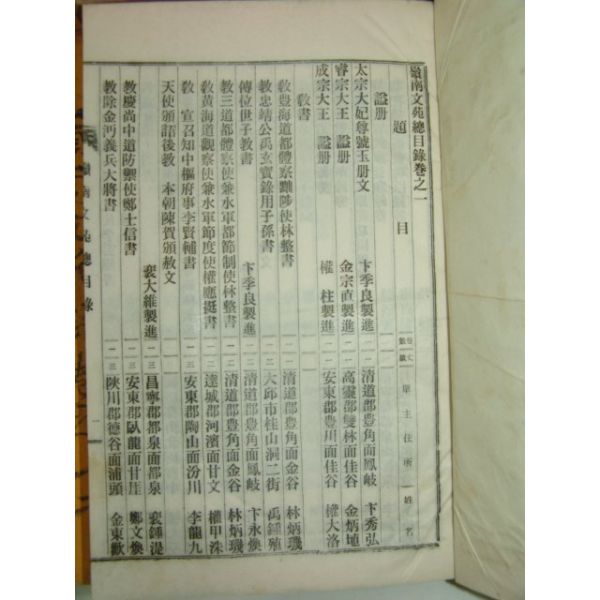 嶺南文苑總目錄卷之一
題 目 卷文 數數 單主住所 姓名
諡册
太宗大妃尊號玉册文 卞季良製進 一 一 清道郡豊角面鳳岐 卞秀弘
睿宗大王 諡册 金宗直製進 一 一 高靈郡雙林面佳谷 金炳埴
成宗大王 諡册 權 柱製進 一 一 安東郡豊川面佳谷 權大洛
教書
教豊海道都體察黜陟使林整書 一 二 清道郡豊角面金谷 林炳璣
教忠靖公禹玄寶錄用子孫書 一 二 大邱市桂山洞二街 禹鍾殖
傳位世子教書 卞季良製進 一 三 清道郡豊角面鳳岐 卞永煥
教三道都體察使兼水軍都節制使林整書 一 二 清道郡豊角面金谷 林炳璣
教黃海道觀察使兼水軍節度使權應挺書 一 二 達城郡河濱面甘文 權甲洙
教 宣召知中樞府事李賢輔書 一 三 安東郡陶山面汾川 李龍九
天使頒語後教 本朝陳賀頒赦文
裵大維製進 一 三 昌寧郡都泉面都泉 裵鍾湜
教慶尚中道防禦使鄭士信書 一 三 安東郡臥龍面甘厓 鄭文煥
教除金沔義兵大將書 一 三 陜川郡德谷面浦頭 金東歡
嶺南文苑總目錄 一